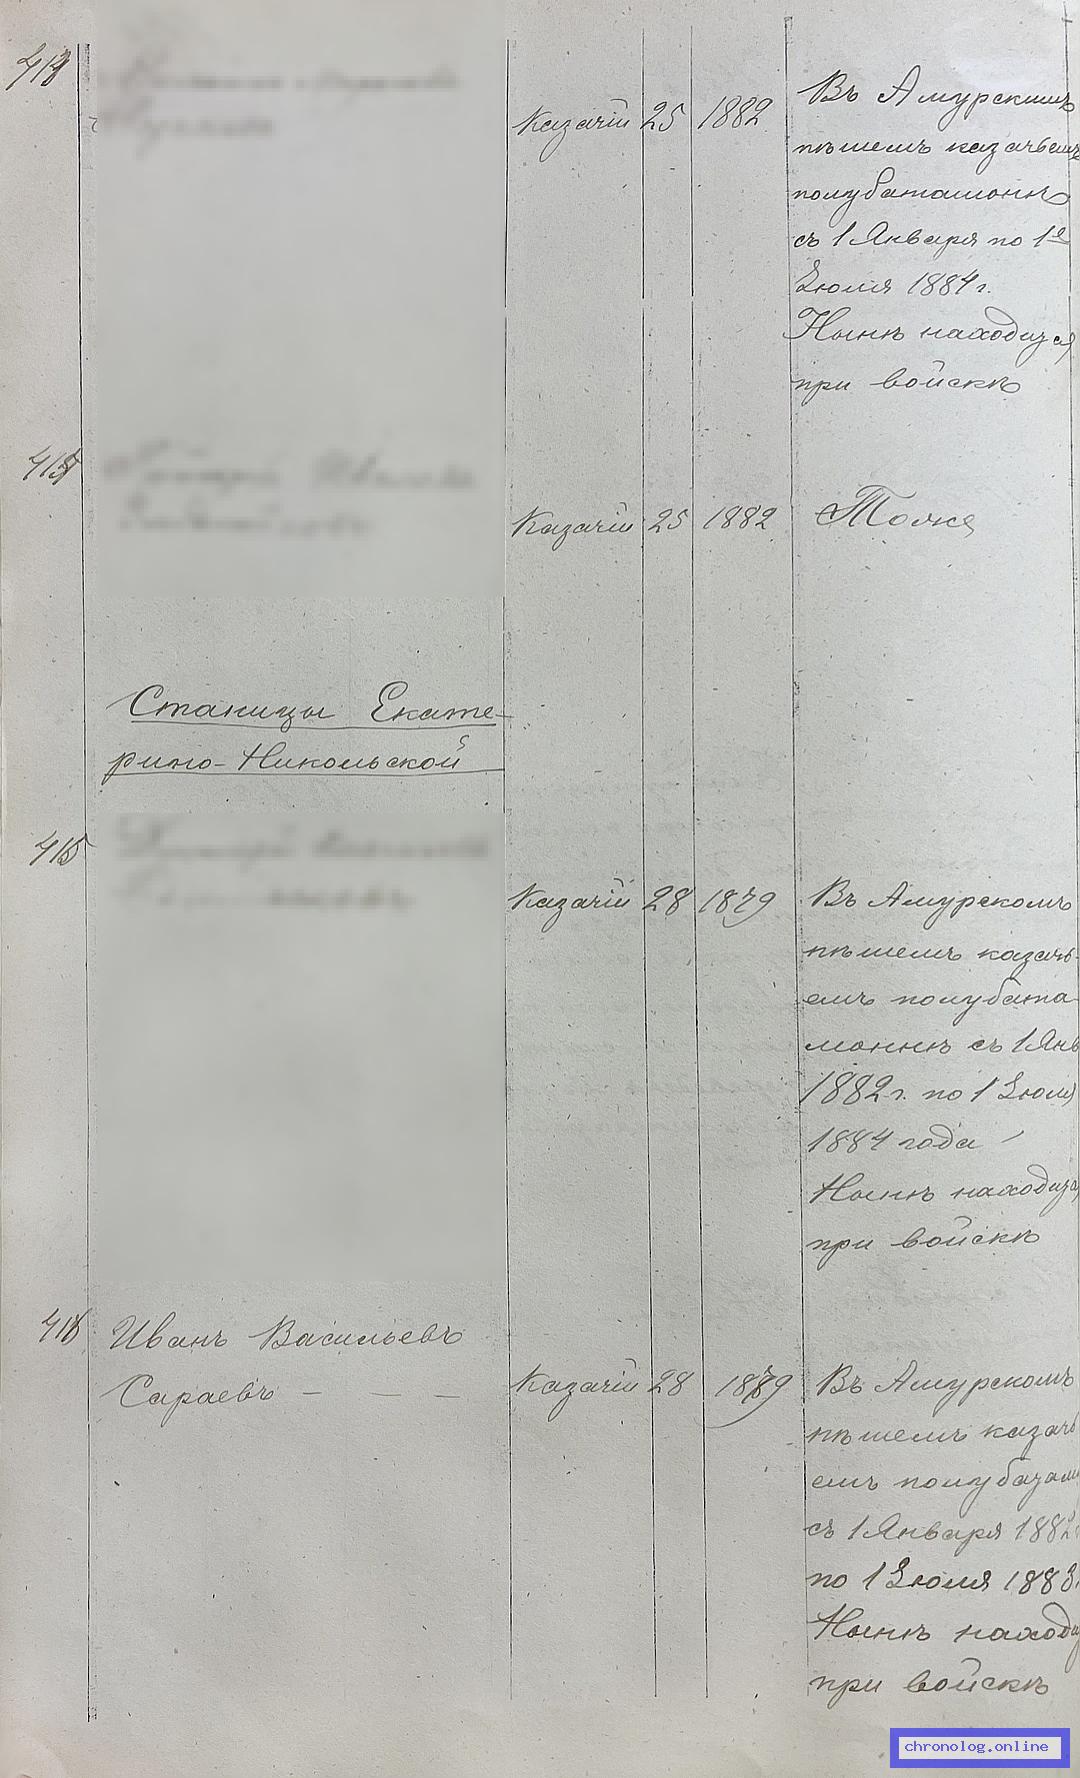 Казачій 25 1882 Въ Амурскимъ
пѣшемъ казачьемъ
полубаталіонѣ
съ 1 Января по 1е
Іюля 1884 г.
Нынѣ находится
при войскѣ
Казачій 25 1882 Тоже
Станицы Екате-
рино-Никольской
415
Казачій 28 1879 Въ Амурскомъ
пѣшемъ казачь-
емъ полубата-
ліонѣ съ 1 Янв
1882 г. по 1 Іюля
1884 года
Нынѣ находится
при войскѣ
416 Иванъ Васильевъ
Сараевъ — — —
Казачій 28 1879 Въ Амурскомъ
пѣшемъ казачь
емъ полубатал
съ 1 Января 1882
по 1 Іюля 1883
Нынѣ находи
при войскѣ
chronolog.online